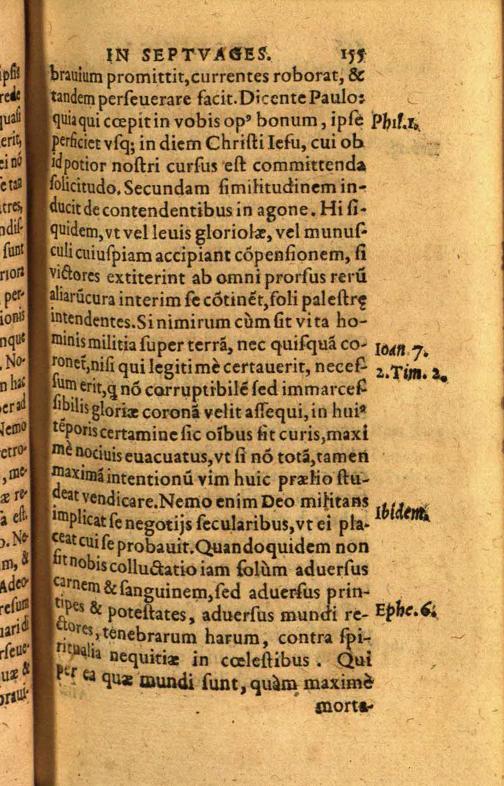 IN SEPTVAGES. 155
brauium promittit, currentes roborat, &
tandem perseuerare facit. Dicente Paulo:
quia qui cœpit in vobis opꝰ bonum, ipse Phil.1.
perficiet vsq; in diem Christi Iesu, cui ob
id potior nostri cursus est committenda
solicitudo. Secundam similitudinem in-
ducit de contendentibus in agone. Hi si-
quidem, vt vel leuis gloriolæ, vel munus-
culi cuiuspiam accipiant cõpensionem, si
victores extiterint ab omni prorsus rerũ
aliarũ cura interim se cõtinẽt, soli palestrę
intendentes. Si nimirum cùm sit vita ho-
minis militia super terrã, nec quisquã co- Ioan 7.
ronet̃, nisi qui legitimè certauerit, neces- 2.Tim. 2.
sum erit, q nõ corruptibilẽ sed immarces-
sibilis gloriæ coronã velit assequi, in huiꝰ
tẽporis certamine sic oĩbus sit curis, maxi
mè nociuis euacuatus, vt si nõ totã, tamen
maximã intentionũ vim huic prælio stu-
deat vendicare. Nemo enim Deo militans
implicat se negotijs secularibus, vt ei pla- Ibidem.
ceat cui se probauit. Quandoquidem non
sit nobis colluctatio iam solùm aduersus
carnem & sanguinem, sed aduersus prin-
tipes & potestates, aduersus mundi re- Ephe.6.
ctores, tenebrarum harum, contra spi-
ritualia nequitiæ in cœlestibus. Qui
per ea quæ mundi sunt, quàm maximè
morta-